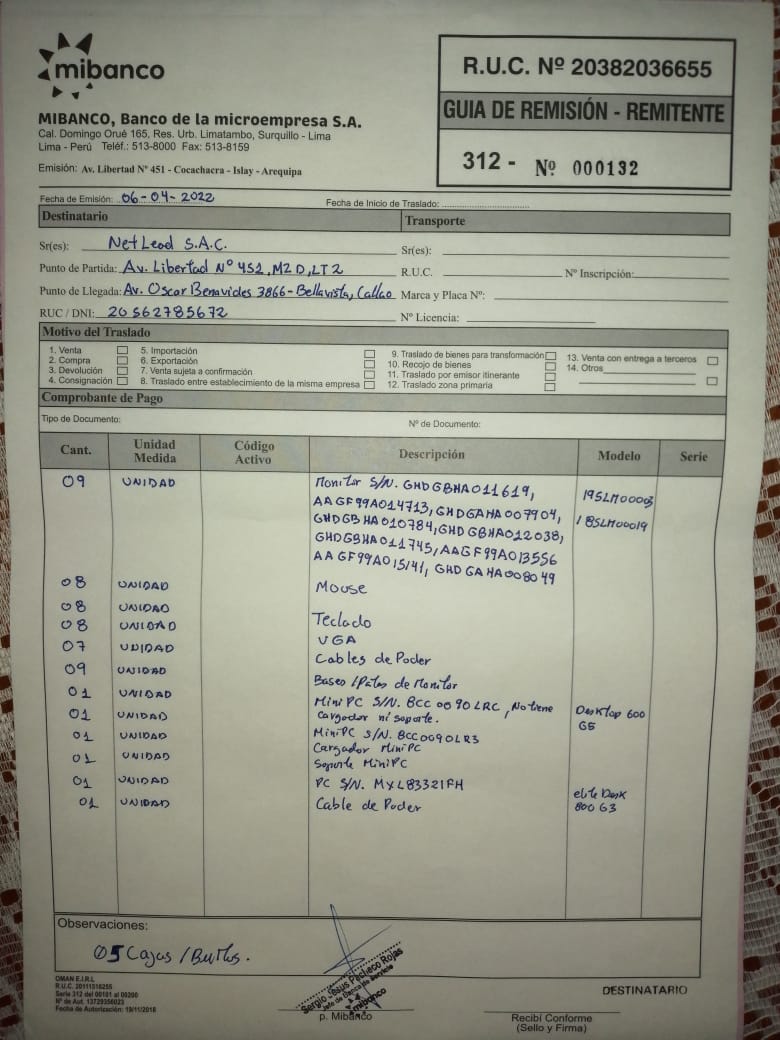 mibanco
R.U.C. Nº 20382036655
GUIA DE REMISIÓN - REMITENTE
312 - Nº 000132
MIBANCO, Banco de la microempresa S.A.
Cal. Domingo Orué 165, Res. Urb. Limatambo, Surquillo - Lima
Lima - Perú Teléf.: 513-8000 Fax: 513-8159
Emisión: Av. Libertad Nº 451 - Cocachacra - Islay - Arequipa
Fecha de Emisión: 06-04-2022 Fecha de Inicio de Traslado:
Destinatario Transporte
Sr(es): NetLead S.A.C. Sr(es):
Punto de Partida: Av. Libertad Nº 451, MZ D, LT 2 R.U.C. Nº Inscripción:
Punto de Llegada: Av. Oscar Benavides 3866-Bellavista, Callao Marca y Placa Nº:
RUC / DNI: 20562785672 Nº Licencia:
Motivo del Traslado
1. Venta 5. Importación 9. Traslado de bienes para transformación 13. Venta con entrega a terceros
2. Compra 6. Exportación 10. Recojo de bienes 14. Otros
3. Devolución 7. Venta sujeta a confirmación 11. Traslado por emisor itinerante
4. Consignación 8. Traslado entre establecimiento de la misma empresa 12. Traslado zona primaria
Comprobante de Pago
Tipo de Documento: Nº de Documento:
Cant. Unidad Medida Código Activo Descripción Modelo Serie
09 UNIDAD Monitor S/N. GHDGBHA011619, 19SLM00003
AAGF99A014713, GHDGAHA007904, 18SLM00019
GHDGBHA010784, GHDGBHA012038,
GHDGBHA011745, AAGF99A013556
AAGF99A015141, GHDGAHA008049
08 UNIDAD Mouse
08 UNIDAD Teclado
08 UNIDAD VGA
07 UNIDAD Cables de Poder
09 UNIDAD Bases /Patas de Monitor
01 UNIDAD MiniPC S/N. 8CC0090LRC, No tiene Desktop 600
cargador ni soporte. G5
01 UNIDAD MiniPC S/N. 8CC0090LR3
01 UNIDAD Cargador MiniPC
01 UNIDAD Soporte MiniPC
01 UNIDAD PC S/N. MXL83321FH elite Desk
01 UNIDAD Cable de Poder 800 G3
Observaciones:
05 Cajas /Bultos.
OMAN E.I.R.L
R.U.C. 20111516255
Serie 312 del 00101 al 00200
Nº de Aut. 13729356023
Fecha de Autorización: 19/11/2018
Sergio Pacheco Rojas
Jefe de Banca de Servicio
mibanco
p. Mibanco
DESTINATARIO
Recibí Conforme
(Sello y Firma)